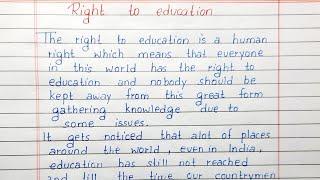 Right to education
The right to education is a human
right which means that everyone
in this world has the right to
education and nobody should be
kept away from this great form
gathering knowledge due to
some issues.
It gets noticed that alot of places
around the world, even in India,
education has still not reached
and till the time our countrymen